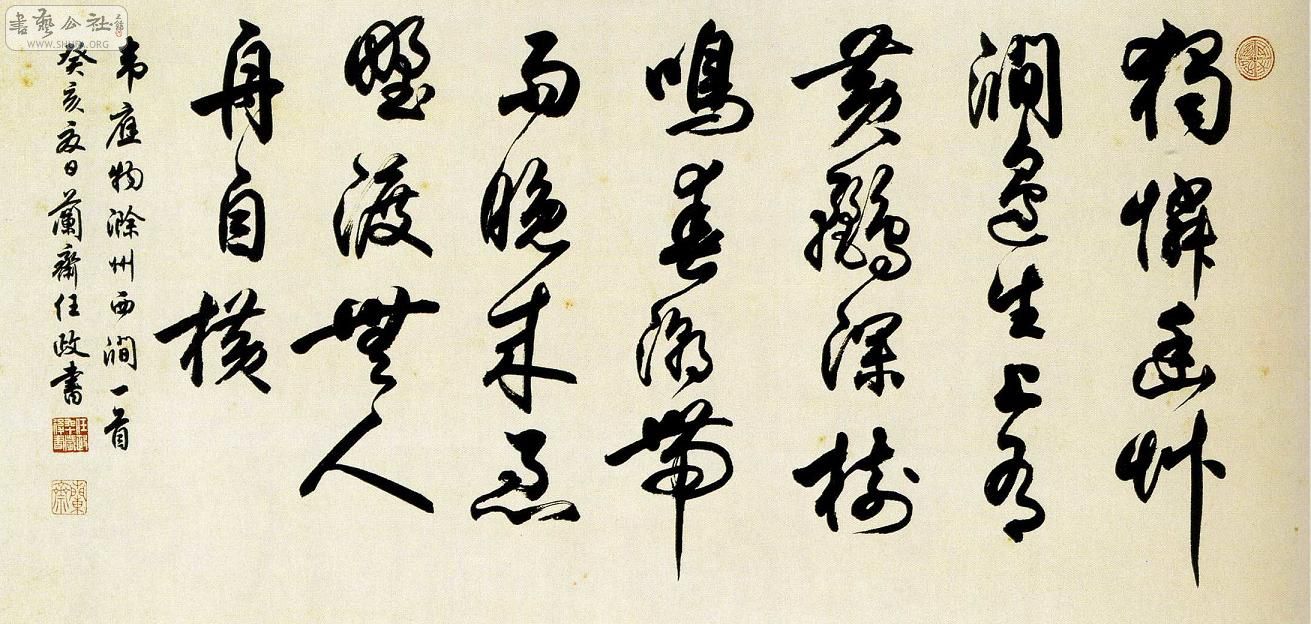 獨憐幽艸
澗邊生上有
黃鸝深樹
鳴春潮帶
雨晚来急
野渡無人
舟自橫
韋應物滁州西澗一首
癸亥夏日蘭齋任政書
書藝公社
WWW.SHUFA.ORG